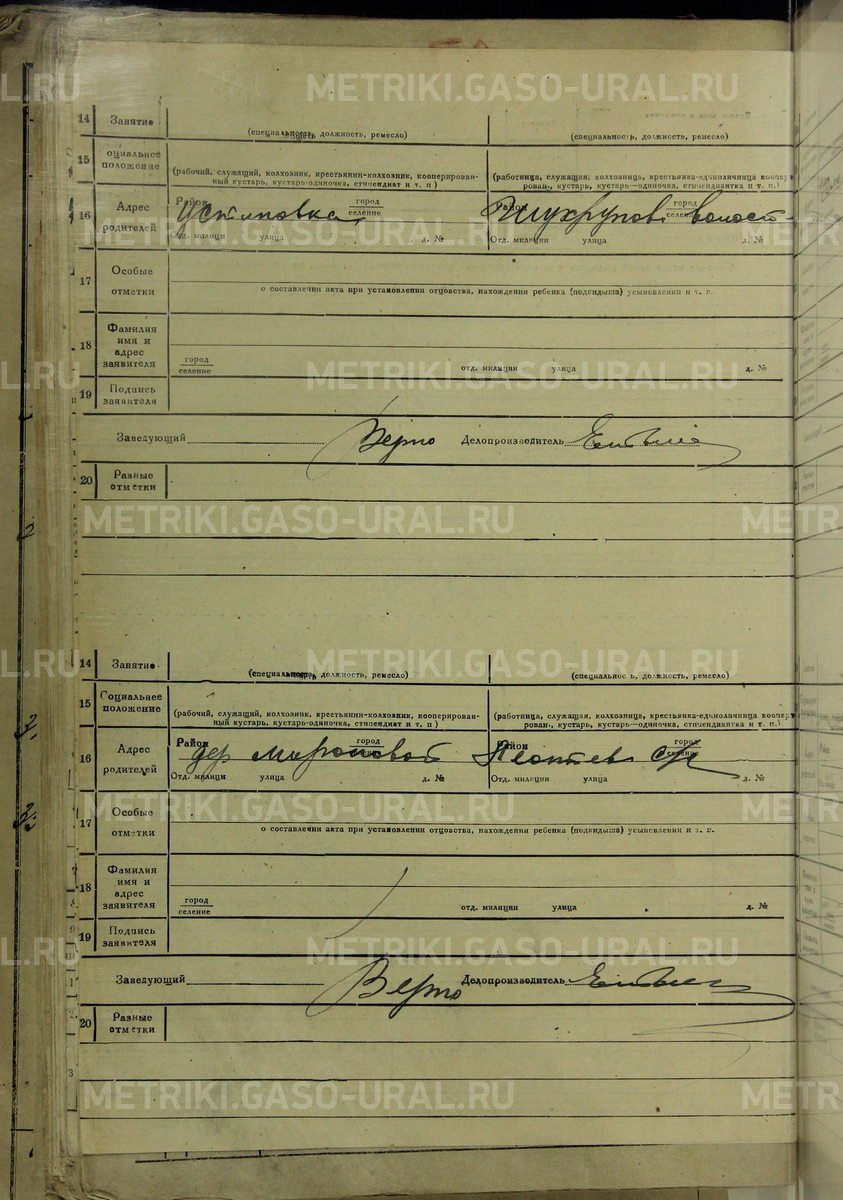 METRIKI.GASO-URAL.RU
14 Занятие
(специальность, должность, ремесло) (специальность, должность, ремесло)
15 оциальное положение
(рабочий, служащий, колхозник, крестьянин-колхозник, кооперирован-
ный кустарь, кустарь-одиночка, стипендиат и т. п )
(работница, служащая, колхозница, крестьянка-единоличница коопер
рован., кустарь, кустарь—одиночка, стипендиантка и т. п.)
16 Адрес родителей
Район Устиновка город селение
Отд. милици улица д. №
Район волост город селение
Отд. милиции улица д. №
17 Особые отметки
о составлении акта при установлении отцовства, нахождения ребенка (подкидыша) усыновлении и т. п.
18 Фамилия имя и адрес заявителя
город селение отд. милиции улица д. №
19 Подпись заявителя
Заведующий Верно Делопроизводитель
20 Разные отметки
METRIKI.GASO-URAL.RU
14 Занятие
(специальность, должность, ремесло) (специальность, должность, ремесло)
15 Социальнее положение
(рабочий, служащий, колхозник, крестьянин-колхозник, кооперирован-
ный кустарь, кустарь-одиночка, стипендиат и т. п )
(работница, служащая, колхозница, крестьянка-единоличница коопер
рован., кустарь, кустарь—одиночка, стипендиантка и т. п.)
16 Адрес родителей
Район дер Мироновой город селение
Отд. милици улица д. №
Район Леонтев с/с город селение
Отд. милиции улица д. №
17 Особые отметки
о составлении акта при установлении отцовства, нахождения ребенка (подкидыша) усыновлении и т. п.
18 Фамилия имя и адрес заявителя
город селение отд. милиции улица д. №
19 Подпись заявителя
Заведующий Верно Делопроизводитель
20 Разные отметки
METRIKI.GASO-URAL.RU